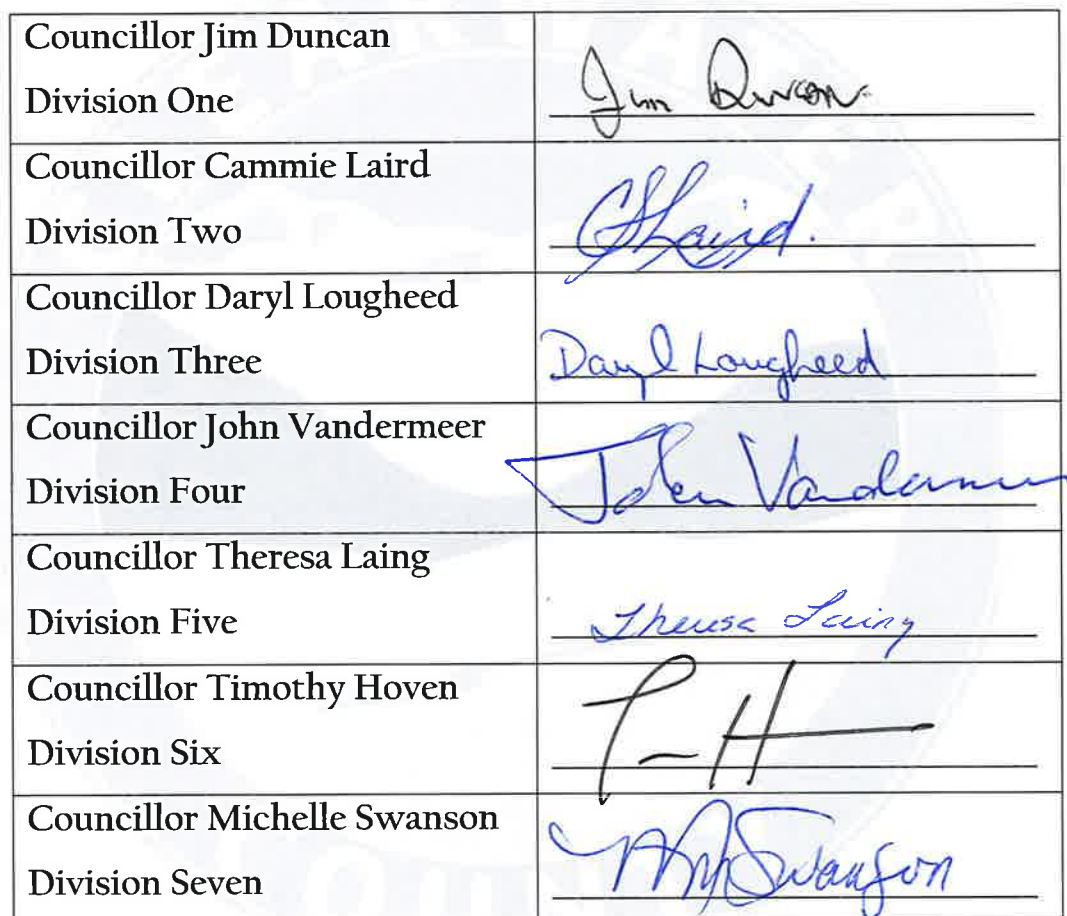 Councillor Jim Duncan
Division One
Jim Duncan
Councillor Cammie Laird
Division Two
CLaird.
Councillor Daryl Lougheed
Division Three
Daryl Lougheed
Councillor John Vandermeer
Division Four
John Vandermeer
Councillor Theresa Laing
Division Five
Theresa Laing
Councillor Timothy Hoven
Division Six
T H
Councillor Michelle Swanson
Division Seven
Swanson